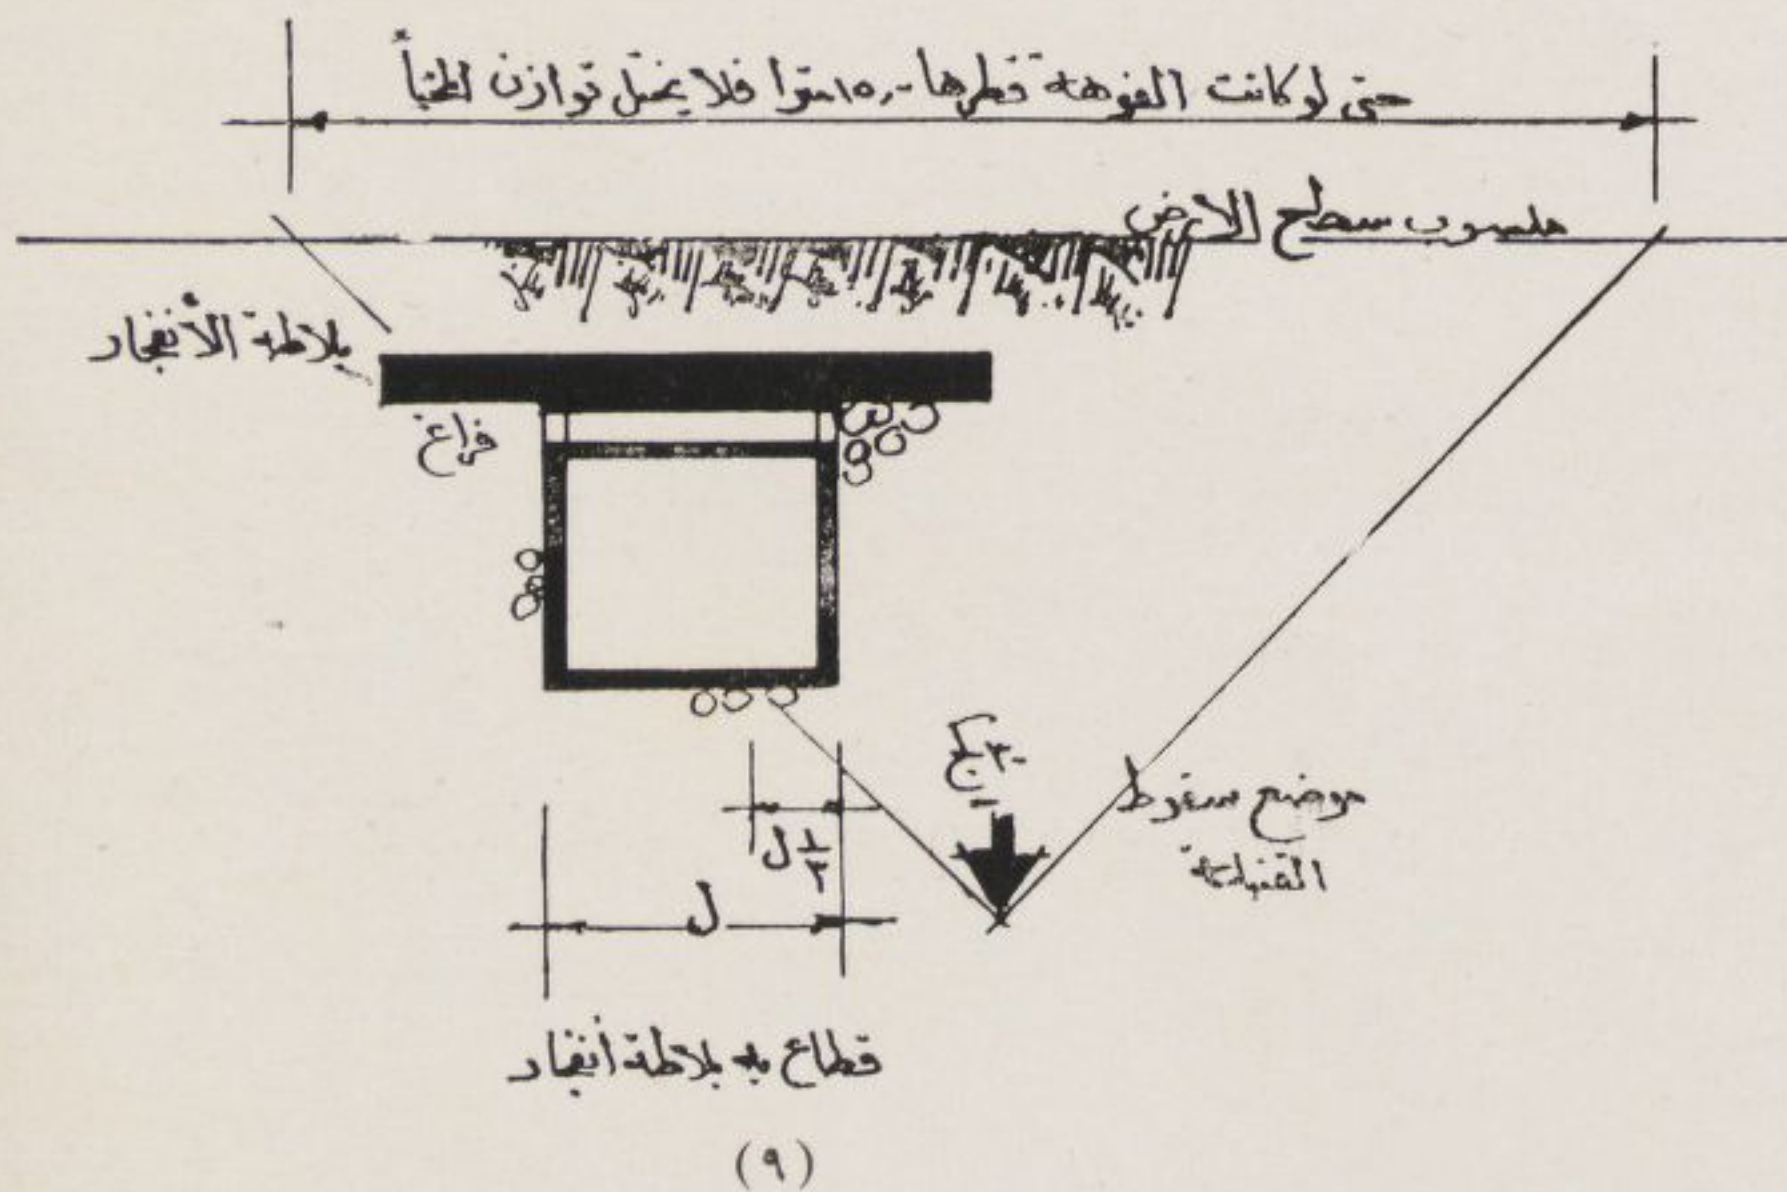 حتى لو كانت الفوهة قطرها ١٥,٠٠ مترا فلا يختل توازن المخبأ
منسوب سطح الأرض
بلاطة الأنفجار
فراغ
موضع سقوط
القنبلة
١/٣ ل
ل
قطاع به بلاطة أنفجار
(٩)